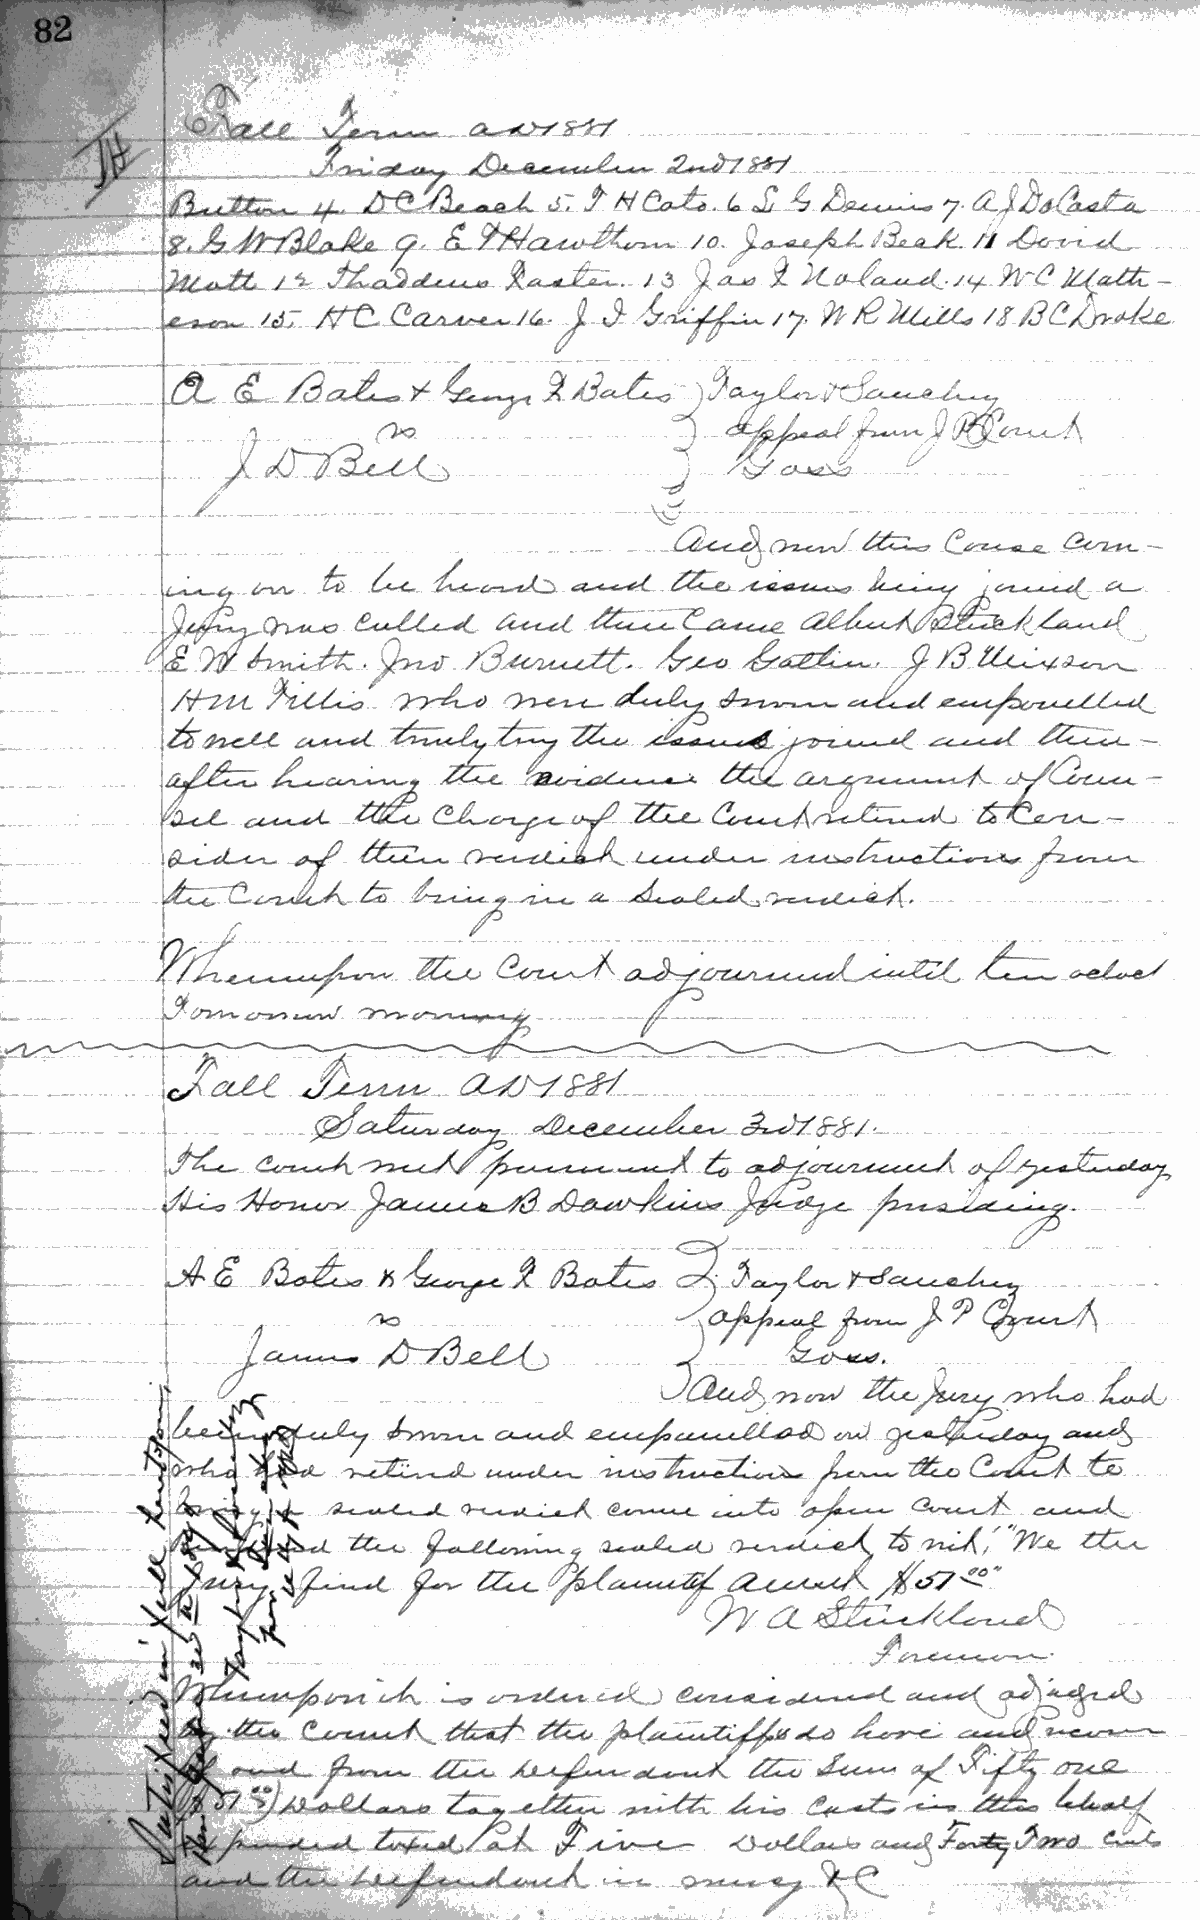 82
Fall Term AD 1881
Friday December 2nd 1881
Button 4. D C Beach 5. T H Cato. 6 L G Dennis 7. A J DaCosta
8. G W Blake 9. E T Hawthorn 10. Joseph Beck. 11 David
Mott 12 Thaddeus Foster. 13 Jas F Noland. 14 W C Math-
eson 15. H C Carver 16. J I Griffin 17. W R Mills 18 B C Drake
A E Bates & George F Bates
vs
J D Bell
Taylor & Sanchez
appeal from J P Court
Goss
And now this Cause com-
ing on to be heard and the issues being joined a
Jury was called and then Came Albert Strickland
E W Smith. Jno Burnett. Geo Gattin. J B Mixson
H M Tillis who were duly sworn and empanelled
to well and truly try the issues joined and then-
after hearing the evidence the argument of Coun-
sel and the Charge of the Court retired to Con-
sider of their verdict under instructions from
the Court to bring in a Sealed verdict.
Whereupon the Court adjourned until ten oclock
Tomorrow morning
Fall Term AD 1881
Saturday December 3rd 1881.
The court met pursuant to adjournment of yesterday
His Honor James B Dawkins Judge presiding.
A E Bates & George F Bates
vs
James D Bell
Taylor & Sanchez
appeal from J P Court
Goss.
And now the Jury who had
been duly sworn and empanelled on yesterday and
who had retired under instructions from the Court to
bring in sealed verdict come into open court and
the following sealed verdict to wit; "We the
Jury find for the plaintiff amount $51 00"
W A Strickland
Foreman.
Whereupon it is ordered considered and adjudged
by the Court that the plaintiffs do have and recover
of and from the defendant the Sum of Fifty one
($51 00) Dollars together with his Costs in this behalf
expended taxed at Five Dollars and Forty Two cents
and the defendant in mercy &C
Satisfied in full